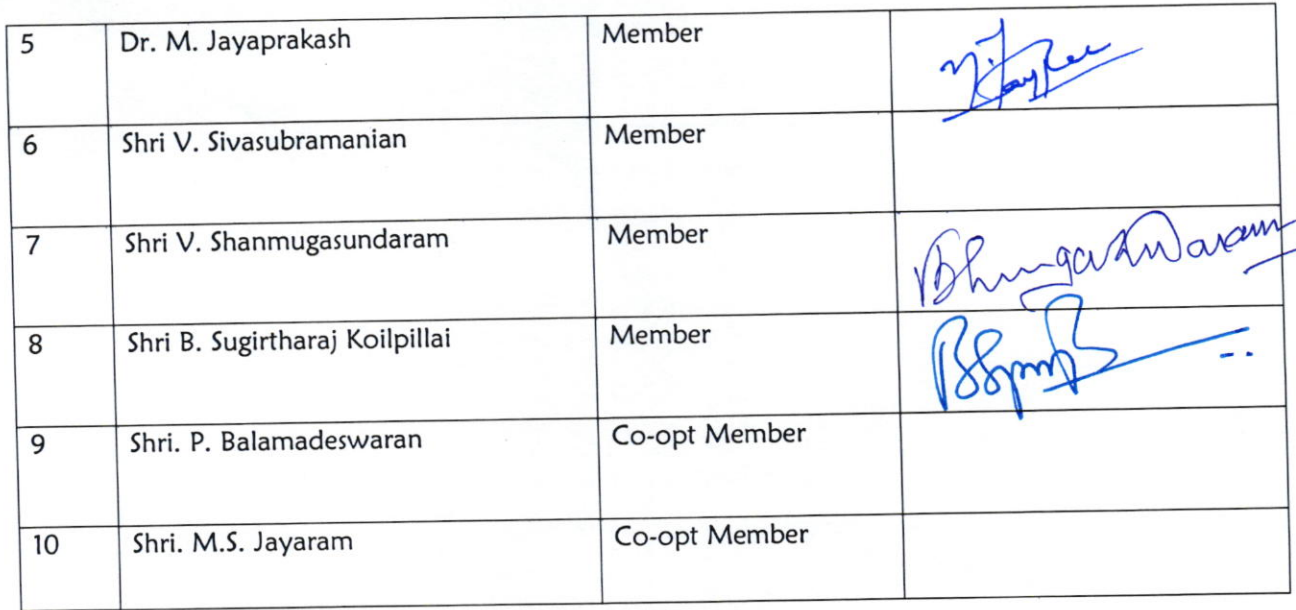 5 Dr. M. Jayaprakash Member
6 Shri V. Sivasubramanian Member
7 Shri V. Shanmugasundaram Member
8 Shri B. Sugirtharaj Koilpillai Member
9 Shri. P. Balamadeswaran Co-opt Member
10 Shri. M.S. Jayaram Co-opt Member